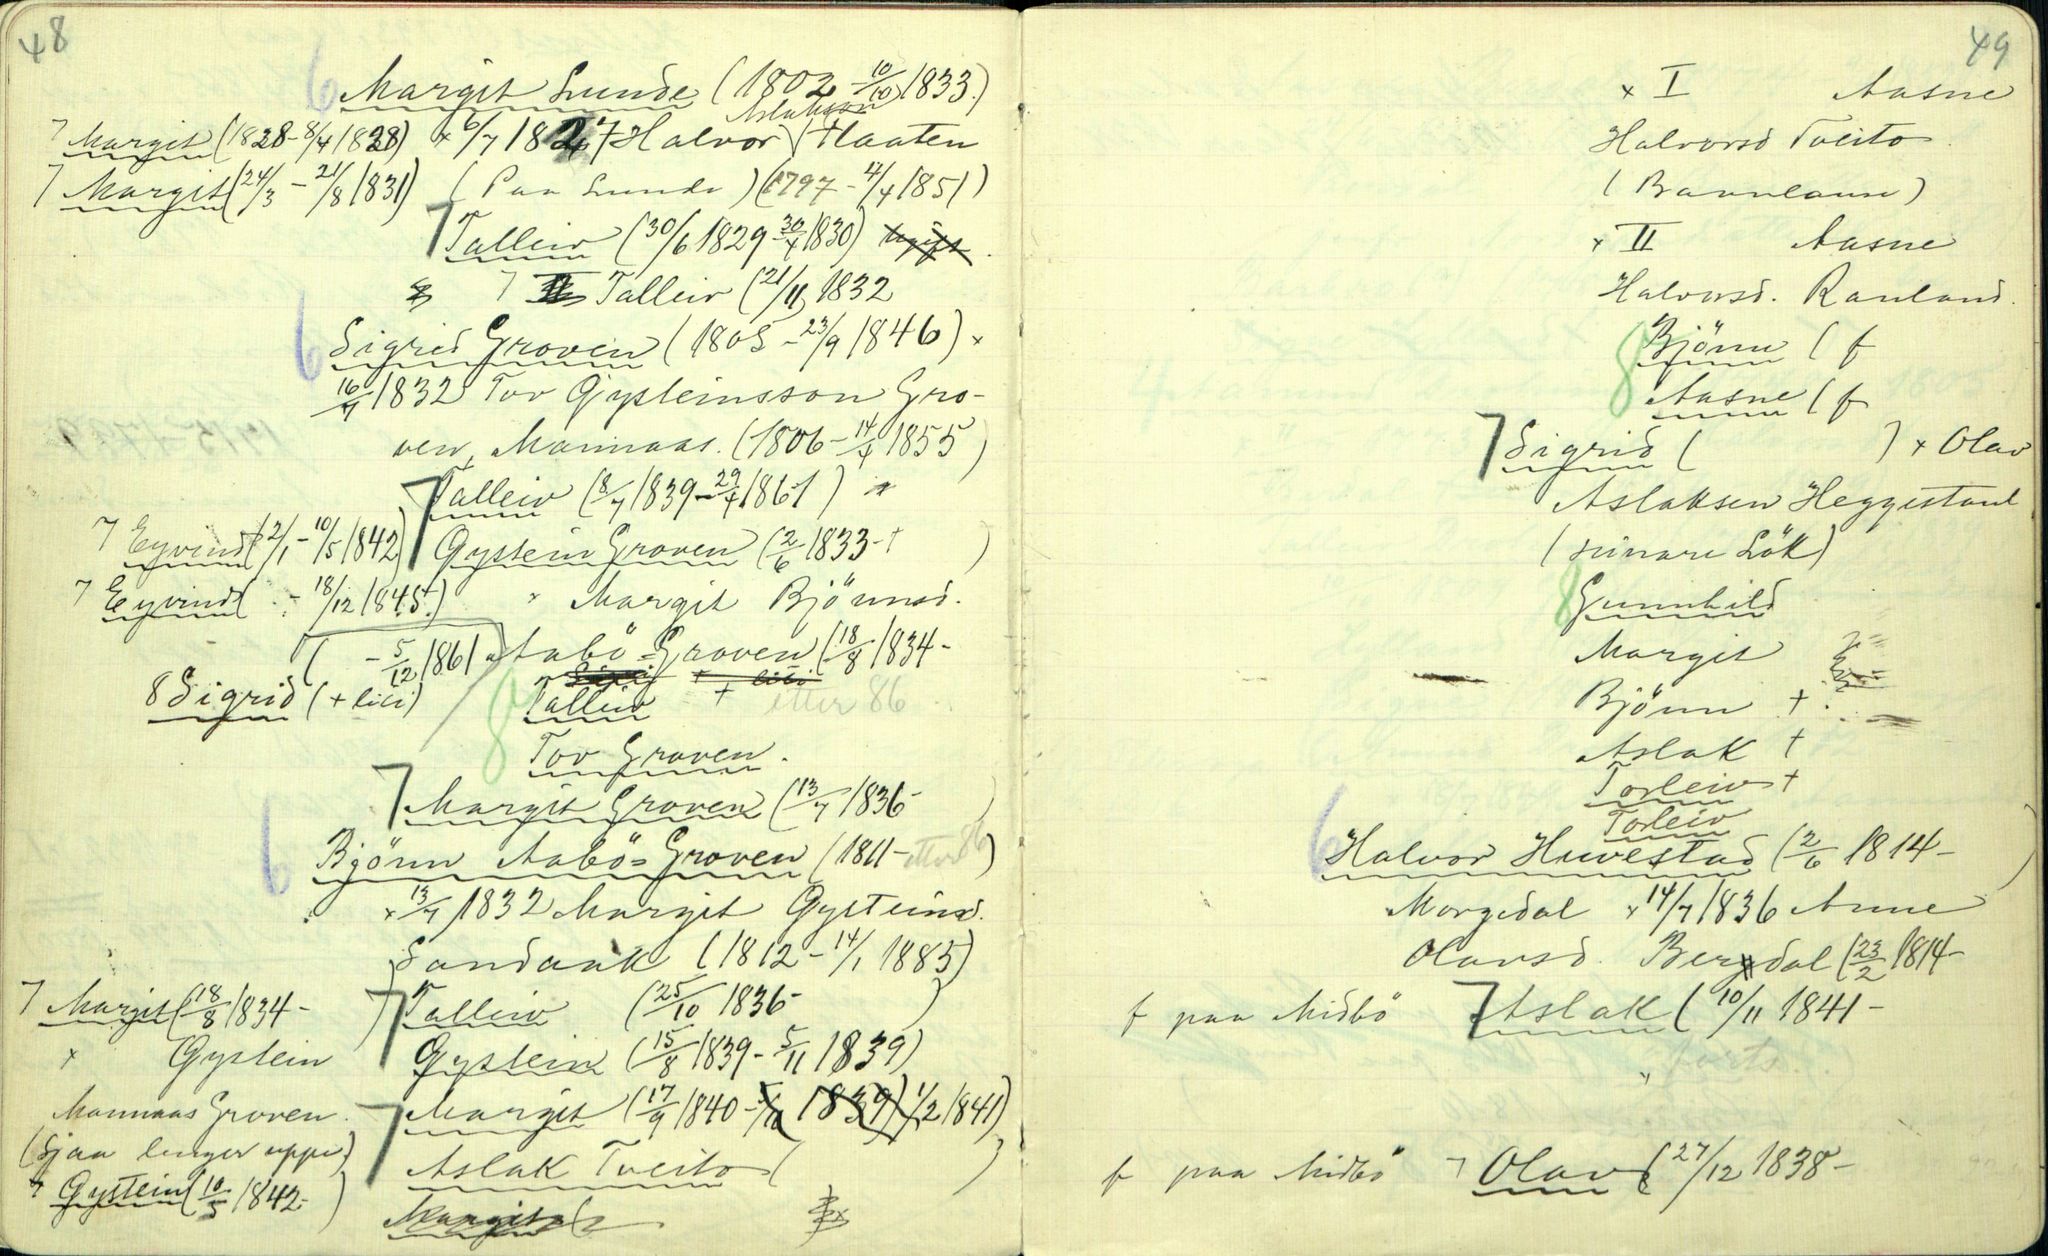 48
6 Margit Lunde (1802 - 10/10 1833.)
Aslaksson
7 Margit (1828 - 8/4 1828) x 6/7 1827 Halvor Haaten
7 Margit (24/3 - 21/8 1831) (Paa Lunde) (1797 - 4/4 1851)
7 Talleiv (30/6 1829 30/4 1830)
7 Talleiv (21/11 1832
6 Sigrid Groven (1805 - 23/9 1846) x
16/7 1832 Tov Gysteinsson Gro-
ven, Mannaas. (1806 - 14/4 1855)
7 Talleiv (8/7 1839 - 29/4 1861)
7 Eyvind (2/1 - 10/5 1842) 7 Gystein Groven (2/6 1833 - + )
7 Eyvind ( - 18/12 1845+) x Margit Bjönnsd.
( - 5/12 1861 Aabö-Groven (18/8 1834 -
8 Sigrid (+ liti) 8 Talleiv + etter 86
8 Tov Groven.
7 Margit Groven (13/7 1836 - )
6 Bjönn Aabö-Groven (1811 - etter 86)
x 13/7 1832 Margit Gysteinsd.
Sandaak (1812 - 14/1 1883)
7 Margit (18/8 1834 - ) 7 Talleiv (25/10 1836 - )
x Gystein Gystein (15/8 1839 - 5/11 1839)
Mannaas Groven. 7 Margit (17/9 1840 - 5/11 1839) 1/2 1841)
(Sjaa lenger uppe) Aslak Tveito ( )
7 Gystein (10/5 1842 - ) Margit (
49
x I Aasne
Halvorsd Tveito.
(Barnlause)
x II Aasne
Halvorsd. Rauland.
8 Bjönn (f
8 Aasne (f
7 Sigrid ( ) x Olav
Aslaksen Heggestaul
(sinare Lök)
8 Gunnhild
Margit
Björn +
Aslak +
Torleiv +
Torleiv
6 Halvor Huvestad (2/6 1814 - )
Morgedal x 14/7 1836 Anne
Olavsd. Berdal (23/2 1814 -
f paa Midbö 7 Aslak (10/11 1841 -
" forts.
f paa Midbö 7 Olav (27/12 1838 -